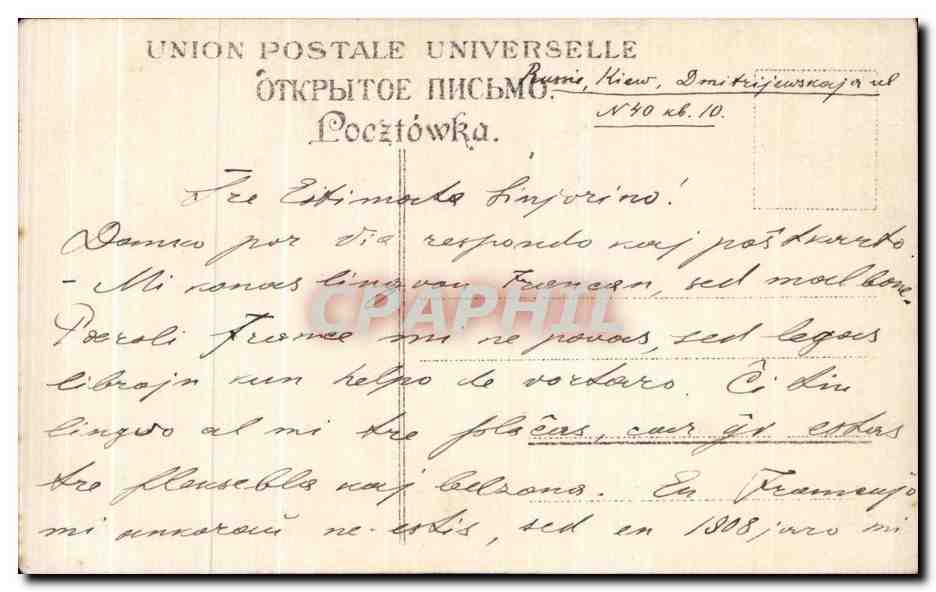 UNION POSTALE UNIVERSELLE
ОТКРЫТОЕ ПИСЬМО.
Pocztówka.
Russie, Kiew, Dmitrijewskaja ul
N 40 кв. 10.
Tre Estimata Sinjorino!
Danko por via respondo kaj poŝtkarto.
- Mi konas lingvon Francan, sed malbone.
Paroli France mi ne povas, sed legas
librojn kun helpo de vortaro. Ĉi tiu
lingvo al mi tre plaĉas, ĉar ĝi estas
tre fleksebla kaj belsona. En Francujo
mi ankoraŭ ne estis, sed en 1908 jaro mi
CPAPHIL